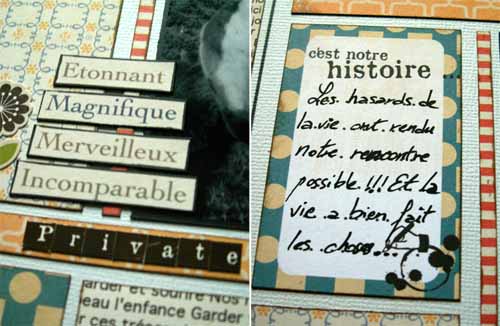 Etonnant
Magnifique
Merveilleux
Incomparable
Private
garder et sourire Nos
eau l'enfance Garder
r ces trésors
c'est notre
histoire...
Les.hasards.de
la.vie.ont.rendu
notre.rencontre
possible!!! Et la
vie.a.bien.fait
les.choses...